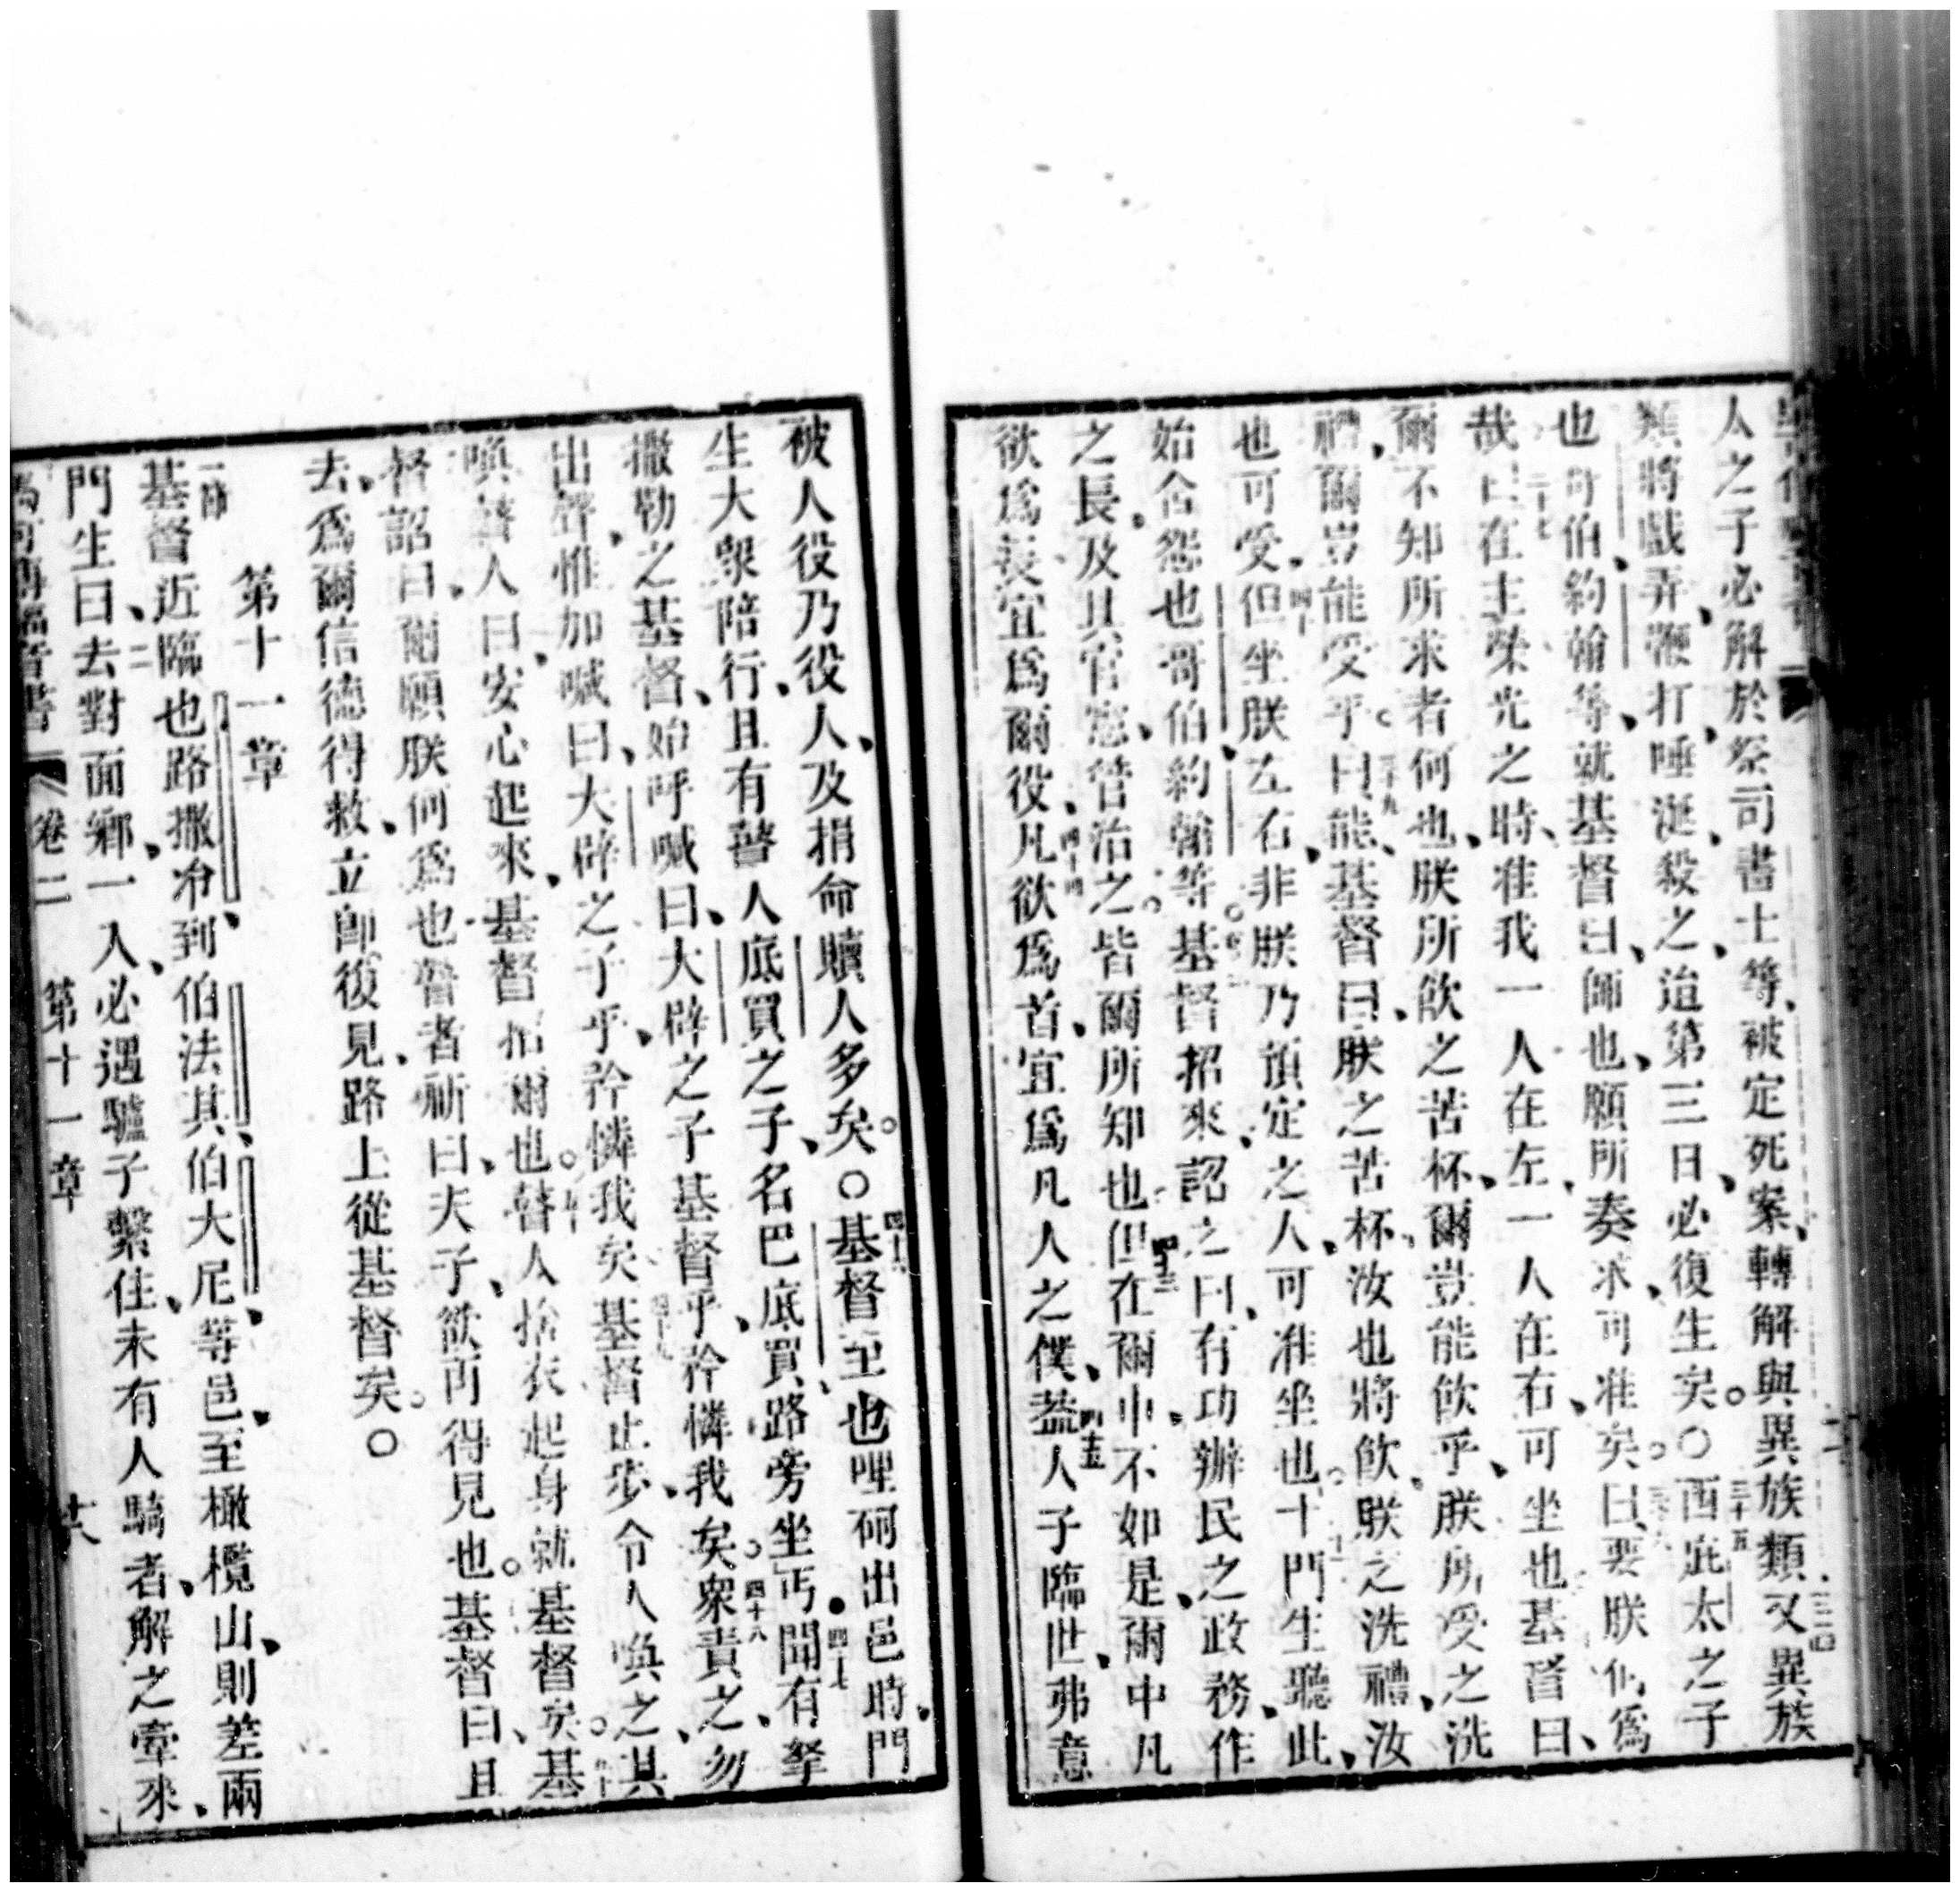 人之子必解於祭司書士等、被定死案、轉解與異族類又異族
類將戲弄、鞭打、唾涎、殺之、迨第三日、必復生矣。〇西庇太之子
也哥伯、約翰等、就基督曰、師也、願所奏求、可准矣。曰、要朕何爲
哉、曰、在主榮光之時、准我一人在左、一人在右、可坐也。基督曰、
爾不知所求者何也、朕所飲之苦杯、爾豈能飲乎、朕所受之洗
禮、爾豈能受乎。曰、能、基督曰、朕之苦杯、汝也將飲、朕之洗禮、汝
也可受、但坐朕左右、非朕乃預定之人、可准坐也。十門生聽此、
始含怨也哥伯約翰等。基督招來、詔之曰、有功辦民之政務、作
之長、及其官憲、管治之。皆爾所知也、但在爾中、不如是、爾中凡
欲爲長、宜爲爾役、凡欲爲首、宜爲凡人之僕、蓋人子臨世、弗意
被人役乃役人、及捐命贖人多矣。〇基督至也哩哥出邑時、門
生大衆陪行、且有瞽人、底買之子、名巴底買、路旁坐丐聞有拏
撒勒之基督、始呼喊曰、大辟之子基督乎、矜憐我矣。衆責之、勿
出聲、惟加喊曰、大辟之子乎、矜憐我矣。基督止步、令人喚之、其
喚瞽人曰、安心起來、基督招爾也。瞽人捨衣起身就基督矣。基
督詔曰、爾願朕何爲也。瞽者祈曰、夫子、欲再得見也。基督曰、且
去、爲爾信德得救、立卽復見、路上從基督矣。〇
第十一章
基督近臨也路撒冷、到伯法其、伯大尼、等邑、至橄欖山、則差兩
門生曰、去對面鄉、一入、必遇驢子繫住、未有人騎者、解之牽來、
馬可傳福音書 卷二 第十一章 十六